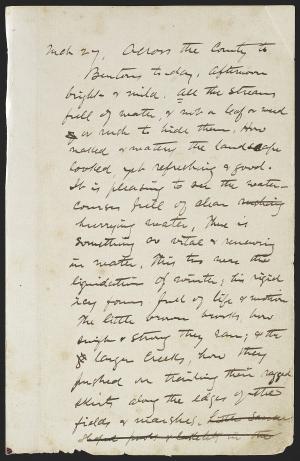 Mch 27, Across the County to
Bentons to-day, Afternoon
bright & mild. All the streams
full of water, & not a leaf or weed
or rush to hide them. How
naked & the landscape
looked, yet refreshing & good.
It is pleasing to see the water-
courses full of clear rushing
hurrying water, there is
something so vital & renewing
in water, this this were the
liquidation of winter; his rigid
icy forms full of life & motion
The little brown brooks, how
swift & strong they ran; & the
larger Creeks, how they
pushed on trailing their ragged
skirts along the edges of the
fields & marshes. Little
in the